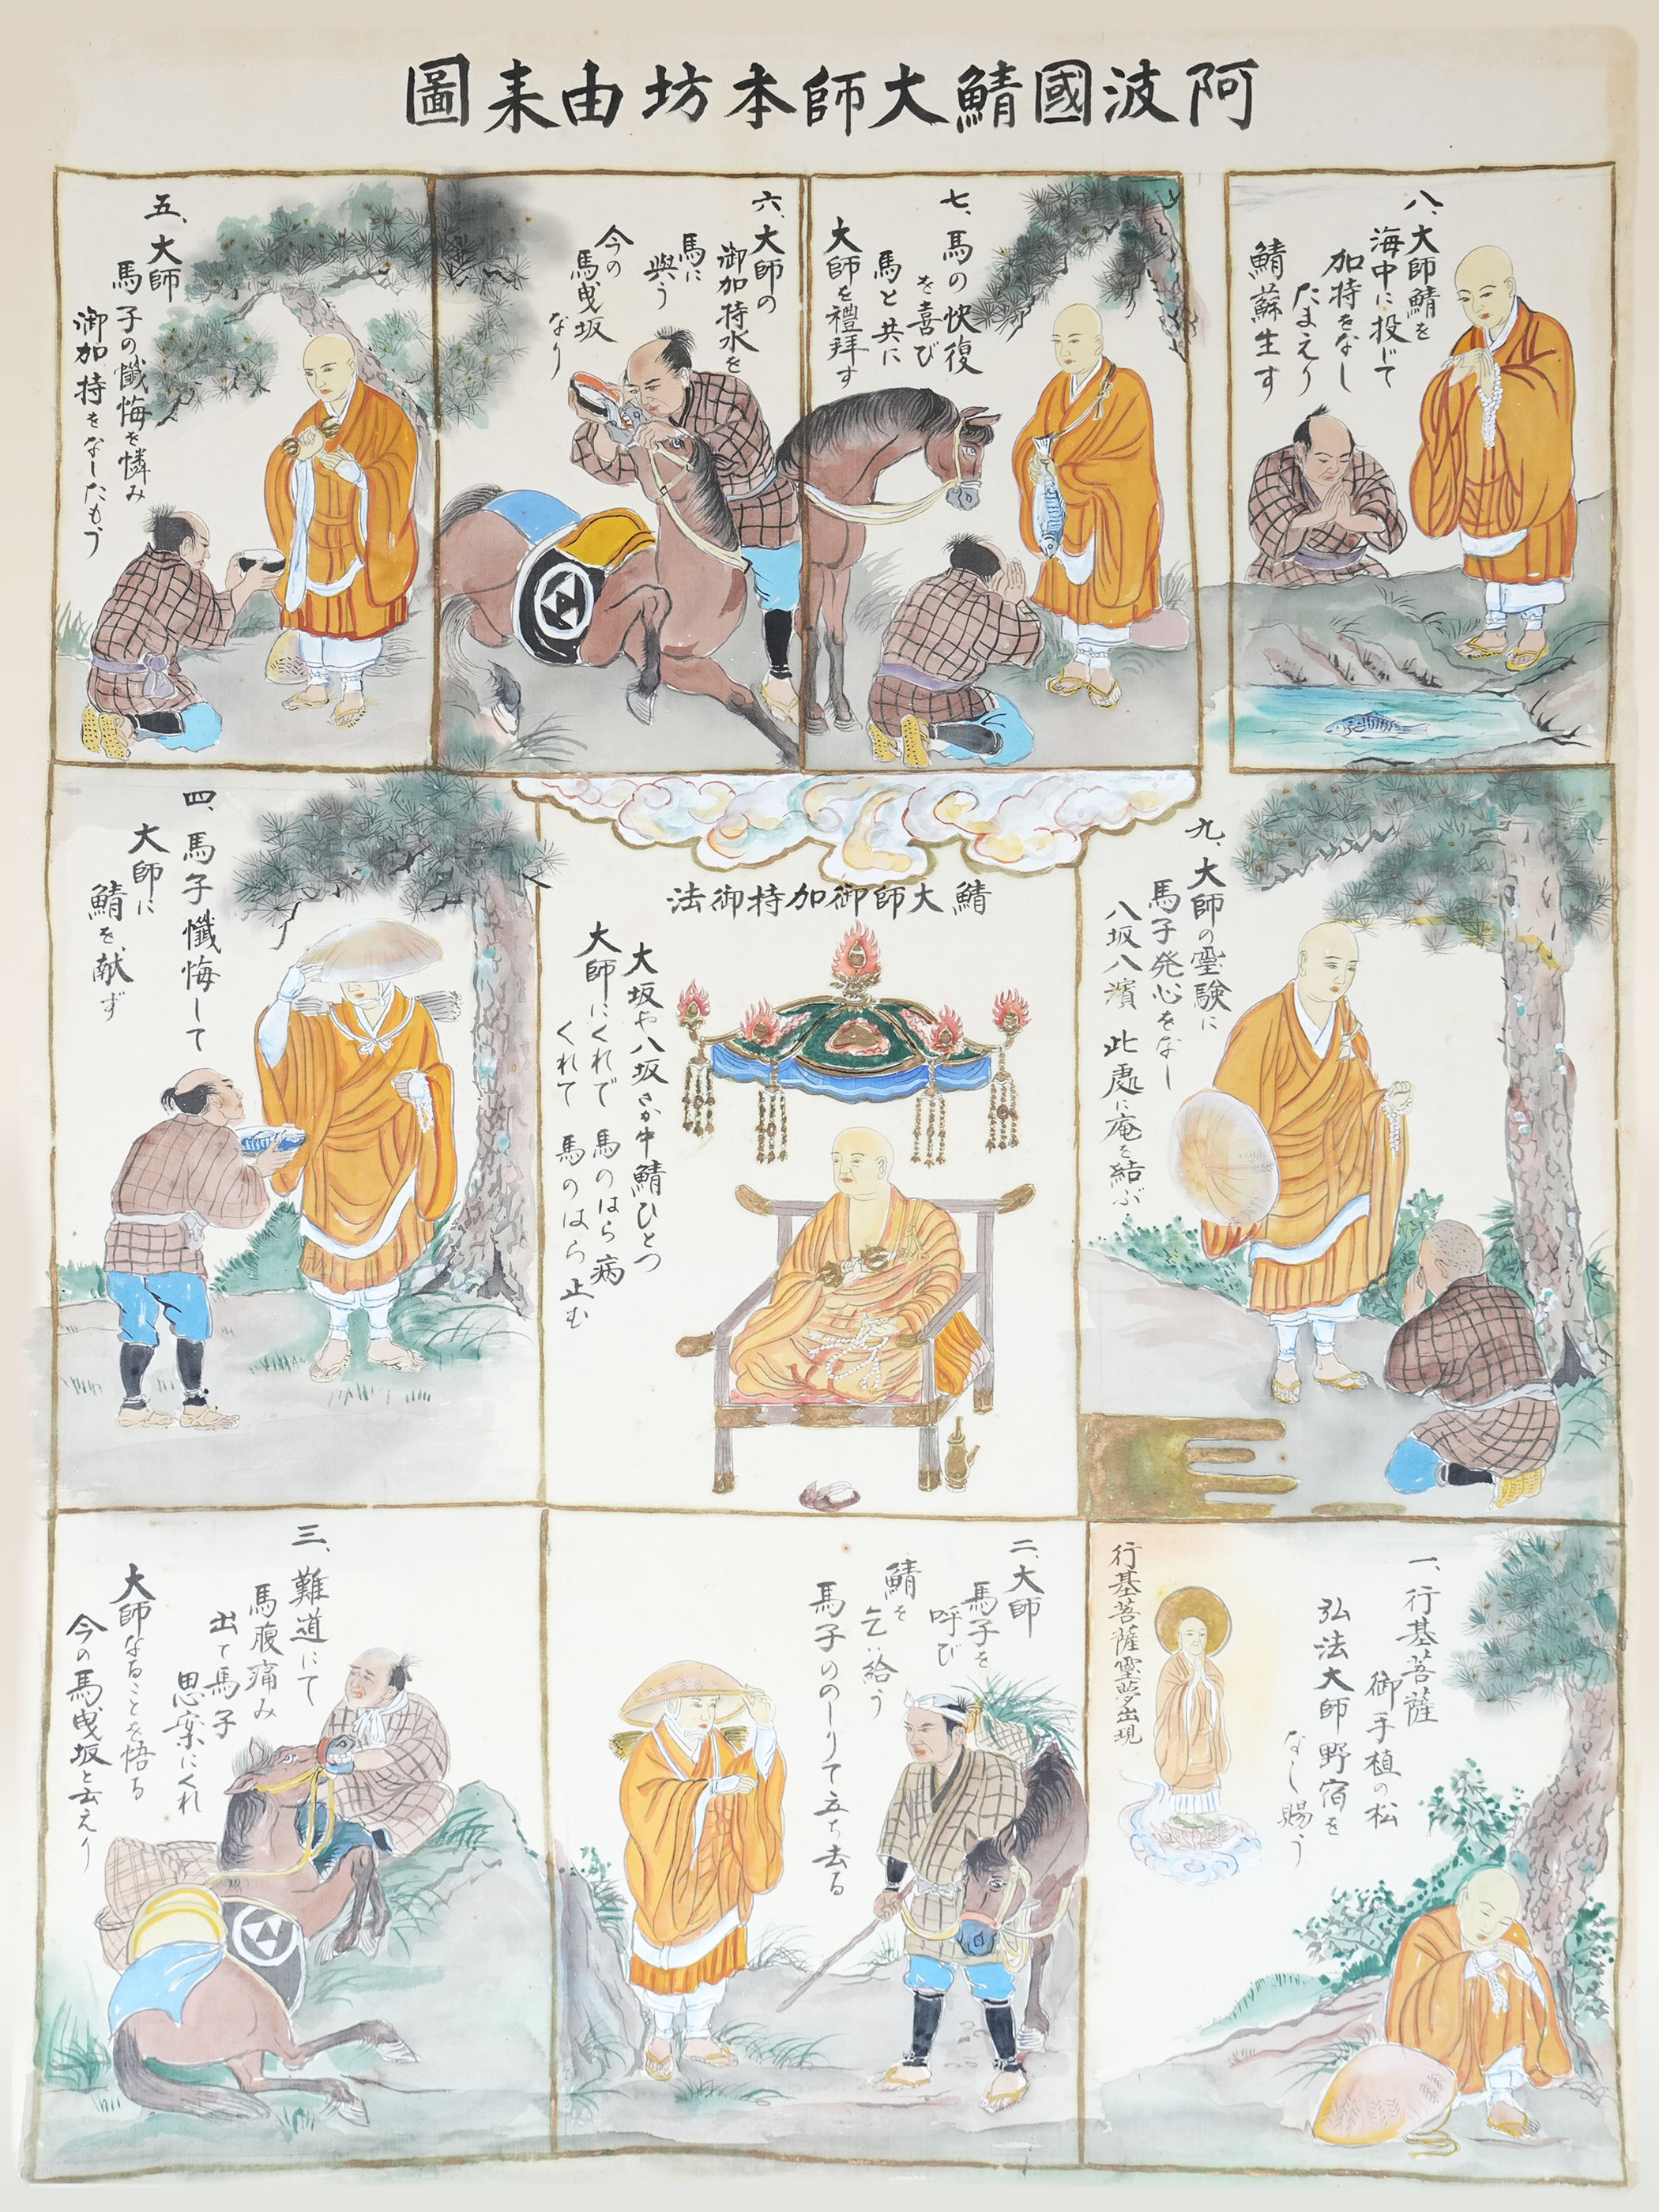 阿波國鯖大師本坊由来圖
一、行基菩薩
御手植の松
弘法大師野宿を
なし賜う
行基菩薩霊夢出現
二、大師
馬子を
呼び
鯖を
乞い給う
馬子ののしりて立ち去る
三、難道にて
馬腹痛み
出て馬子
思案にくれ
大師なることを悟る
今の馬曵坂と云えり
四、馬子懺悔して
大師に
鯖を献ず
五、大師
馬子の懺悔を憐み
御加持をなしたもう
六、大師の
御加持水を
馬に
與う
今の
馬曵坂
なり
七、馬の快復
を喜び
馬と共に
大師を禮拜す
八、大師鯖を
海中に投じて
加持をなし
たまえり
鯖蘇生す
九、大師の霊験に
馬子発心をなし
八坂八濱 此處に庵を結ぶ
鯖大師御加持御法
大坂や八坂さか中鯖ひとつ
大師にくれで 馬のはら病
くれて 馬のはら止む